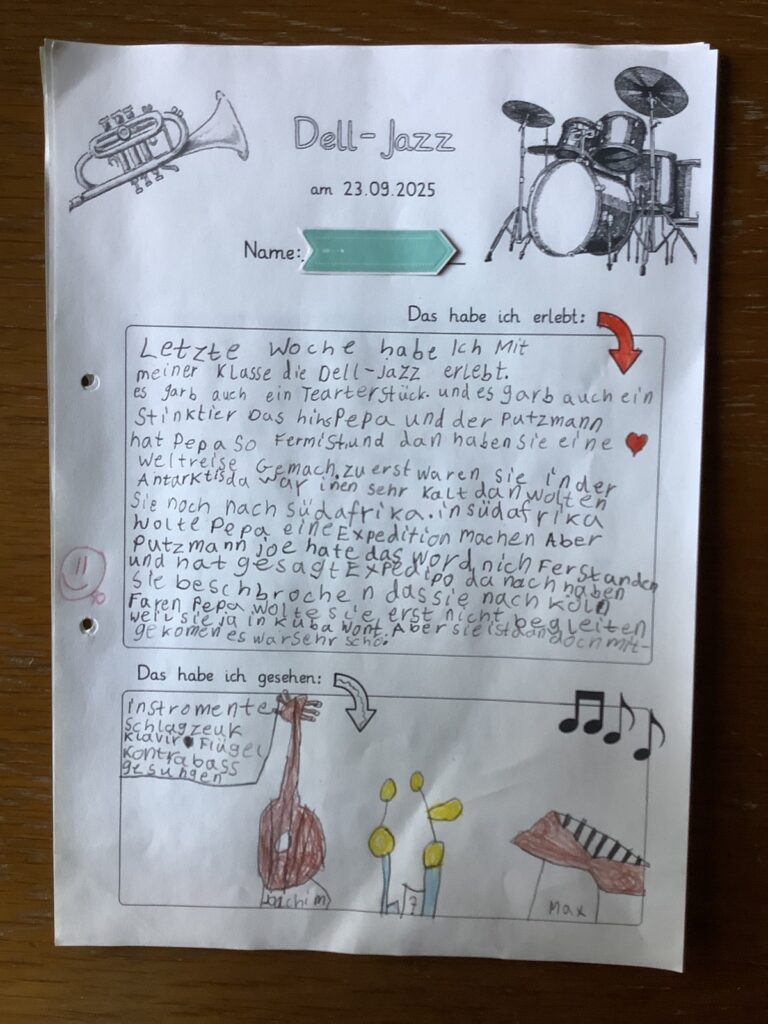 Dell-Jazz
am 23.09.2025
Name:
Das habe ich erlebt:
Letzte Woche habe Ich Mit
meiner Klasse die Dell-Jazz erlebt.
es garb auch ein Tearterstück. und es garb auch ein
Stinktier Das hihs Pepa und der Putzmann
hat Pepa so Fermist. und dan haben sie eine
weltreise Gemach. zu erst waren sie in der
Antarktis da war inen sehr kalt dan wolten
Sie noch nach südafrika. in südafrika
wolte Pepa eine Expedition machen Aber
Putzmann joe hate das word nich Ferstanden
und hat gesagt Expedipo da nach haben
sie beschbrochen das sie nach Köln
Faren Pepa wolte sie erst nicht begleiten
weil sie ja in kuba wont. Aber sie ist dan doch mit-
gekomen es war sehr schö.
Das habe ich gesehen:
instromente
Schlagzeuk
Klavir Flügel
Kontrabass
gesungen
Max